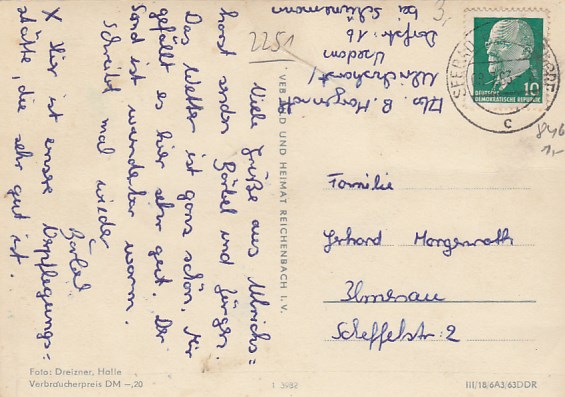 Viele Grüße aus Ulrichs=
horst senden Bärbel und Jürgen.
Das Wetter ist ganz schön. Mir
gefällt es hier sehr gut. Der
Sand ist wunderbar warm.
Schreibt mal wieder
Bärbel
X Hier ist unsere Verpflegungs=
stätte, die sehr gut ist.
2251
Abs. B. Morgenroth
Ulrichshorst/
Usedom
Dorfstr. 16
bei Schünemann
VEB BILD UND HEIMAT REICHENBACH I. V.
3,
SEEBAD
10
DEUTSCHE
DEMOKRATISCHE REPUBLIK
c
846
1,-
Familie
Gerhard Morgenroth
Ilmenau
Scheffelstr. 2
Foto: Dreizner, Halle
Verbraucherpreis DM —,20
1 3982
III/18/6A3/63DDR